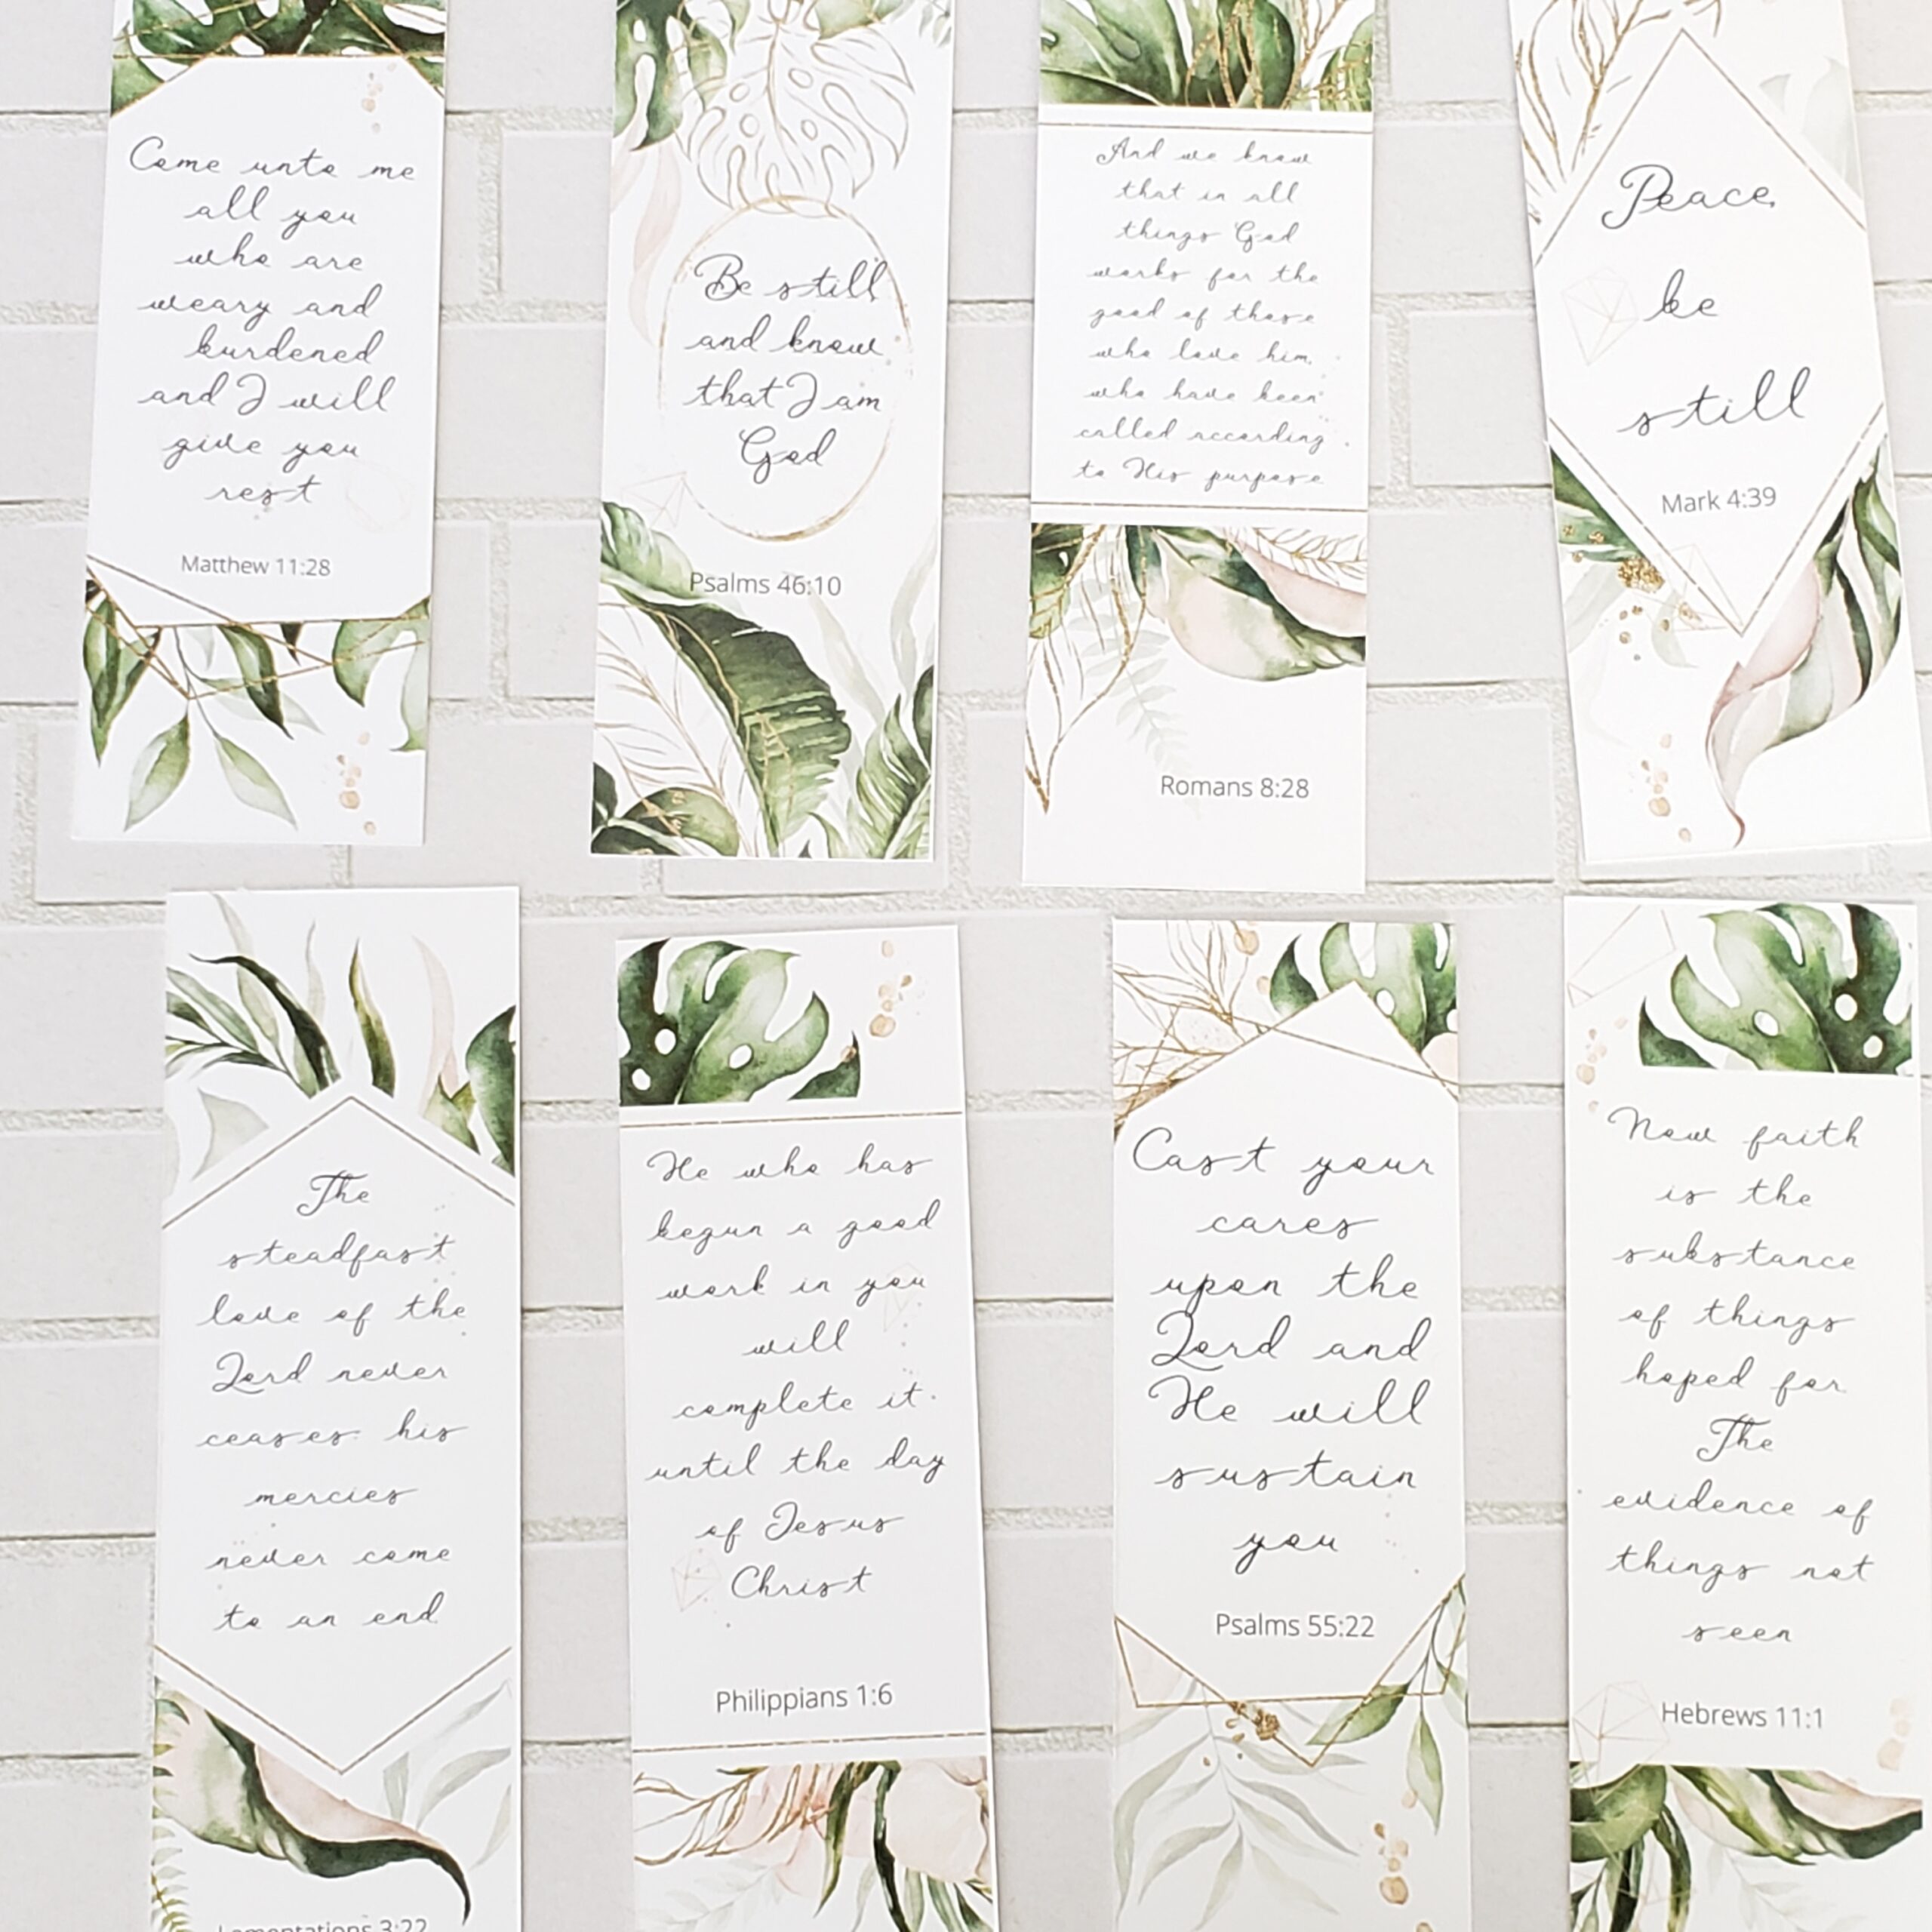 Come unto me
all you
who are
weary and
burdened
and I will
give you
rest
Matthew 11:28
Be still
and know
that I am
God
Psalms 46:10
And we know
that in all
things God
works for the
good of those
who love him,
who have been
called according
to His purpose
Romans 8:28
Peace,
be
still
Mark 4:39
The
steadfast
love of the
Lord never
ceases his
mercies
never come
to an end
Lamentations 3:22
He who has
begun a good
work in you
will
complete it
until the day
of Jesus
Christ
Philippians 1:6
Cast your
cares
upon the
Lord and
He will
sustain
you
Psalms 55:22
Now faith
is the
substance
of things
hoped for
The
evidence of
things not
seen
Hebrews 11:1